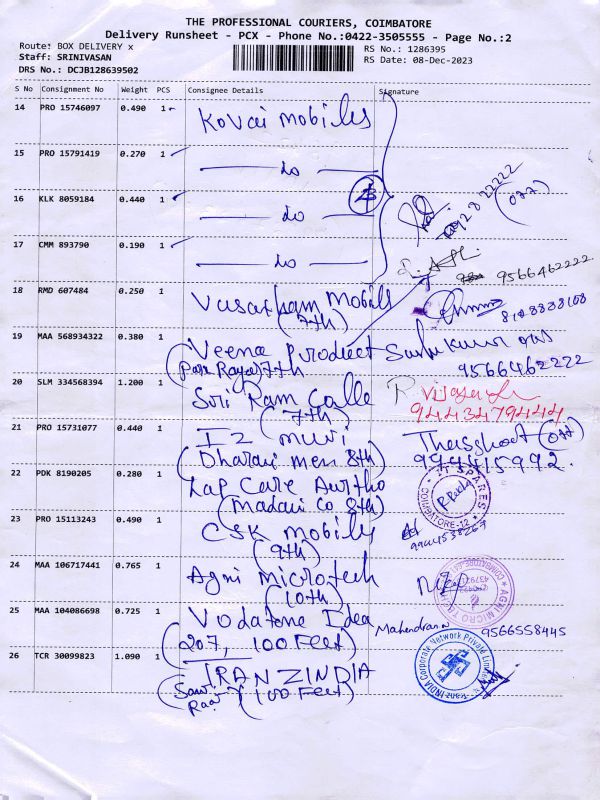 THE PROFESSIONAL COURIERS, COIMBATORE
Delivery Runsheet - PCX - Phone No.:0422-3505555 - Page No.:2
Route: BOX DELIVERY x
RS No.: 1286395
Staff: SRINIVASAN
RS Date: 08-Dec-2023
DRS No.: DCJB128639502
S No Consignment No Weight PCS Consignee Details Signature
14 PRO 15746097 0.490 1 Kovai mobiles
15 PRO 15791419 0.270 1 do
16 KLK 8059184 0.440 1 do
(077)
17 CMM 893790 0.190 1 do
9566462222
18 RMD 607484 0.250 1 Vasantham Mobils
(7th)
19 MAA 568934322 0.380 1 Veena Product
9566462222
20 SLM 334568394 1.200 1 Sri Ram Calle
(7th)
9443479444
21 PRO 15731077 0.440 1 I2 muri
(Dharani men 8th)
22 PDK 8190205 0.280 1 Lap Care Aurtho
(Madani Co 8th)
COIMBATORE-12
23 PRO 15113243 0.490 1 CSK mobils
(9th)
9944538267
24 MAA 106717441 0.765 1 Agni microtech
(10th)
25 MAA 104086698 0.725 1 Vodafone Idea
(207, 100 Feet)
Mahendran 9566558445
26 TCR 30099823 1.090 1 TRANZINDIA
(100 Feet)
Tranz INDIA Corporate Network Private Limited